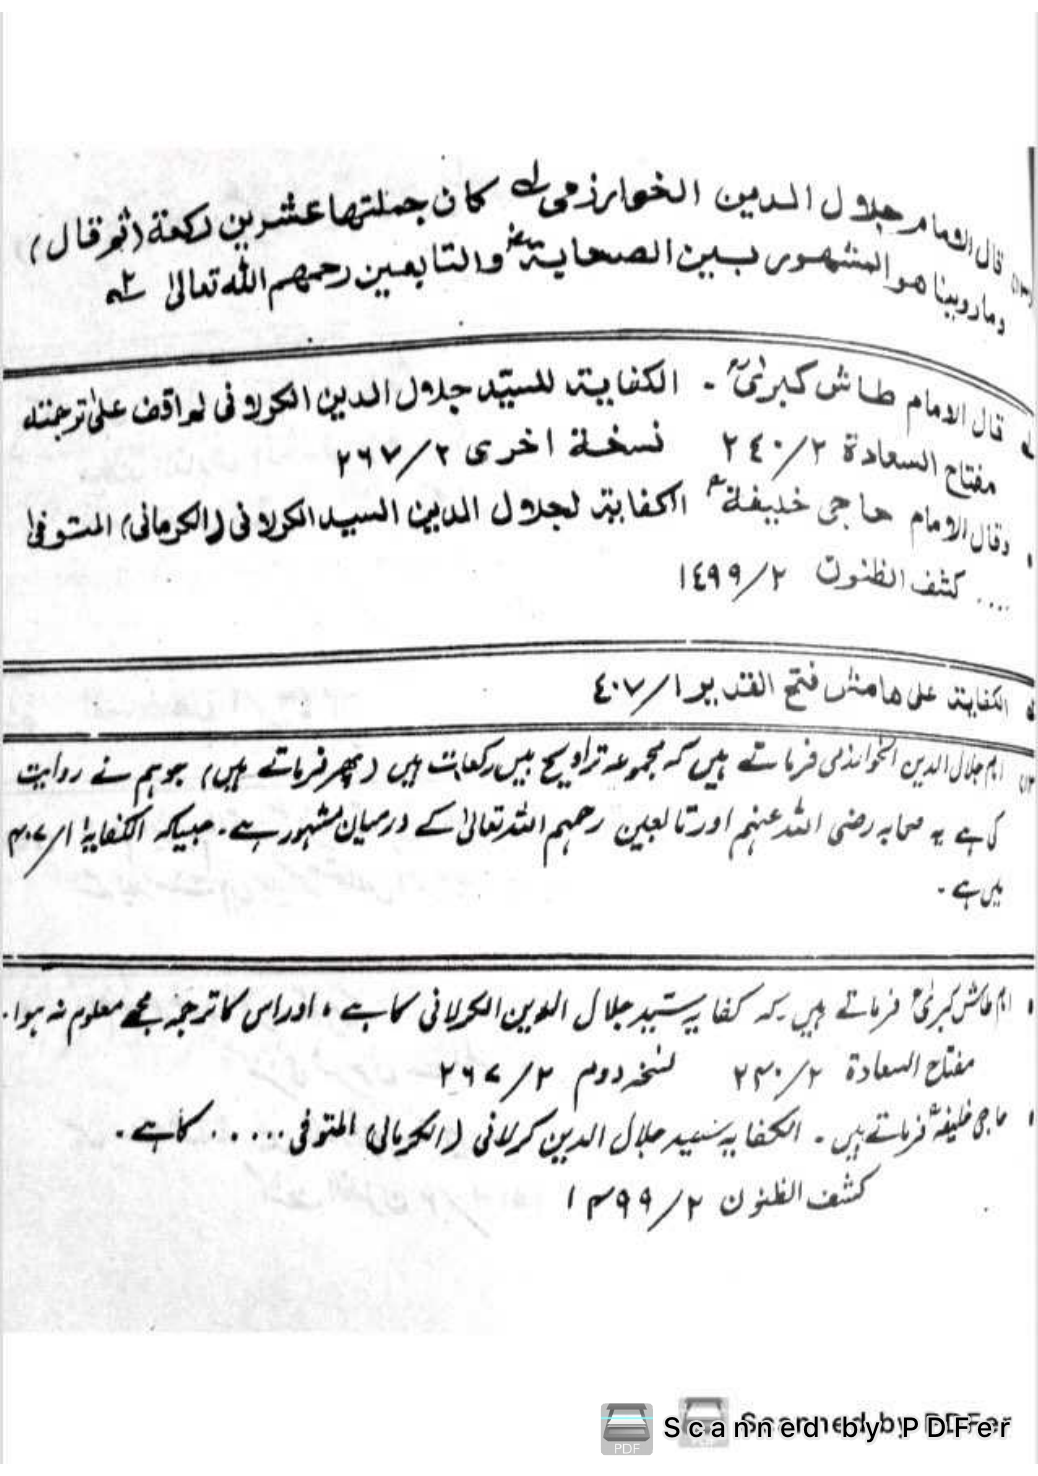 قال الامام جلال الدين الخوارزمى له كان جملتها عشرين ركعة (ثم قال)
وما روينا هو المشهور بين الصحابة والتابعين رحمهم الله تعالى
قال الامام طاش كبرىٰ - الكفاية للسيّد جلال الدين الكرلانى لم اقف علىٰ ترجمته
مفتاح السعادة ٢/٢٤٠ نسخة اخرى ٢/٢٦٧
وقال الامام حاجى خليفة الكفاية لجلال الدين السيد الكرلانى (الكرمانى) المتوفىٰ
.... كشف الظنون ٢/١٤٩٩
الكفاية على هامش فتح القدير ١/٤٠٧
امام جلال الدین الخوارزمی فرماتے ہیں کہ مجموعہ تراویح بیس رکعات ہیں (پھر فرماتے ہیں) جو ہم نے روایت
کی ہے یہ صحابہ رضی اللہ عنہم اور تابعین رحمہم اللہ تعالیٰ کے درمیان مشہور ہے۔ جیسا کہ الکفایۃ ۱/۴۰۷
میں ہے۔
امام طاش کبریٰ فرماتے ہیں کہ کفایہ سید جلال الدین الکرلانی کا ہے، اور اس کا ترجمہ مجھے معلوم نہ ہوا۔
مفتاح السعادۃ ۲/۲۴۰ نسخہ دوم ۲/۲۶۷
حاجی خلیفہ فرماتے ہیں۔ الکفایہ سید جلال الدین کرلانی (الکرمانی) المتوفی ..... کا ہے۔
کشف الظنون ۲/۱۴۹۹
Scanned by PDFer
Scanned by PDFer
PDF